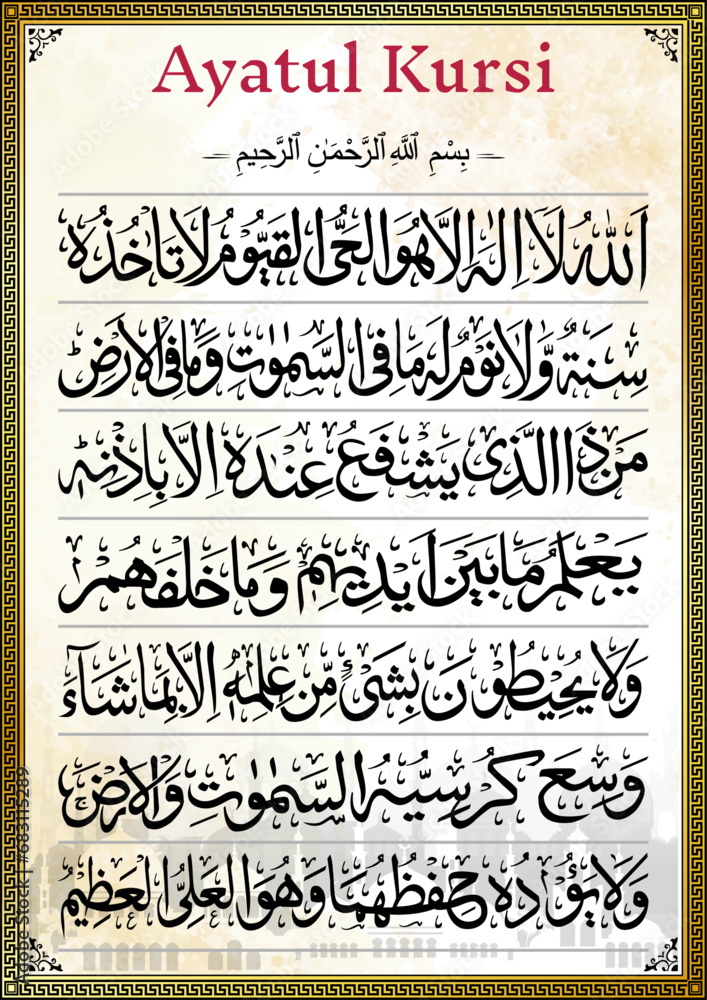 Ayatul Kursi
بِسْمِ ٱللَّهِ ٱلرَّحْمَـٰنِ ٱلرَّحِيمِ
اَللّٰهُ لَآ اِلٰهَ اِلَّا هُوَ الْحَىُّ الْقَيُّوْمُ لَا تَاْخُذُهٗ
سِنَةٌ وَّلَا نَوْمٌ لَهٗ مَا فِى السَّمٰوٰتِ وَمَا فِى الْاَرْضِ ط
مَنْ ذَا الَّذِىْ يَشْفَعُ عِنْدَهٗ اِلَّا بِاِذْنِهٖ ط
يَعْلَمُ مَا بَيْنَ اَيْدِيْهِمْ وَمَا خَلْفَهُمْ
وَلَا يُحِيْطُوْنَ بِشَىْءٍ مِّنْ عِلْمِهٖٓ اِلَّا بِمَا شَآءَ
وَسِعَ كُرْسِيُّهُ السَّمٰوٰتِ وَالْاَرْضَ ج
وَلَا يَؤُدُهٗ حِفْظُهُمَا وَهُوَ الْعَلِىُّ الْعَظِيْمُ
Adobe Stock | #683115289